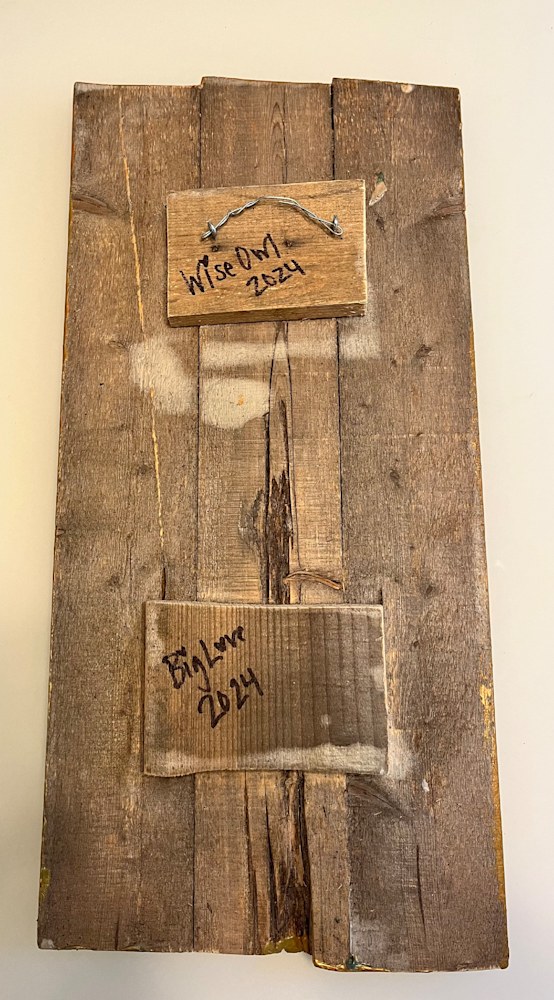 Wise Owl
2024
Big Love
2024